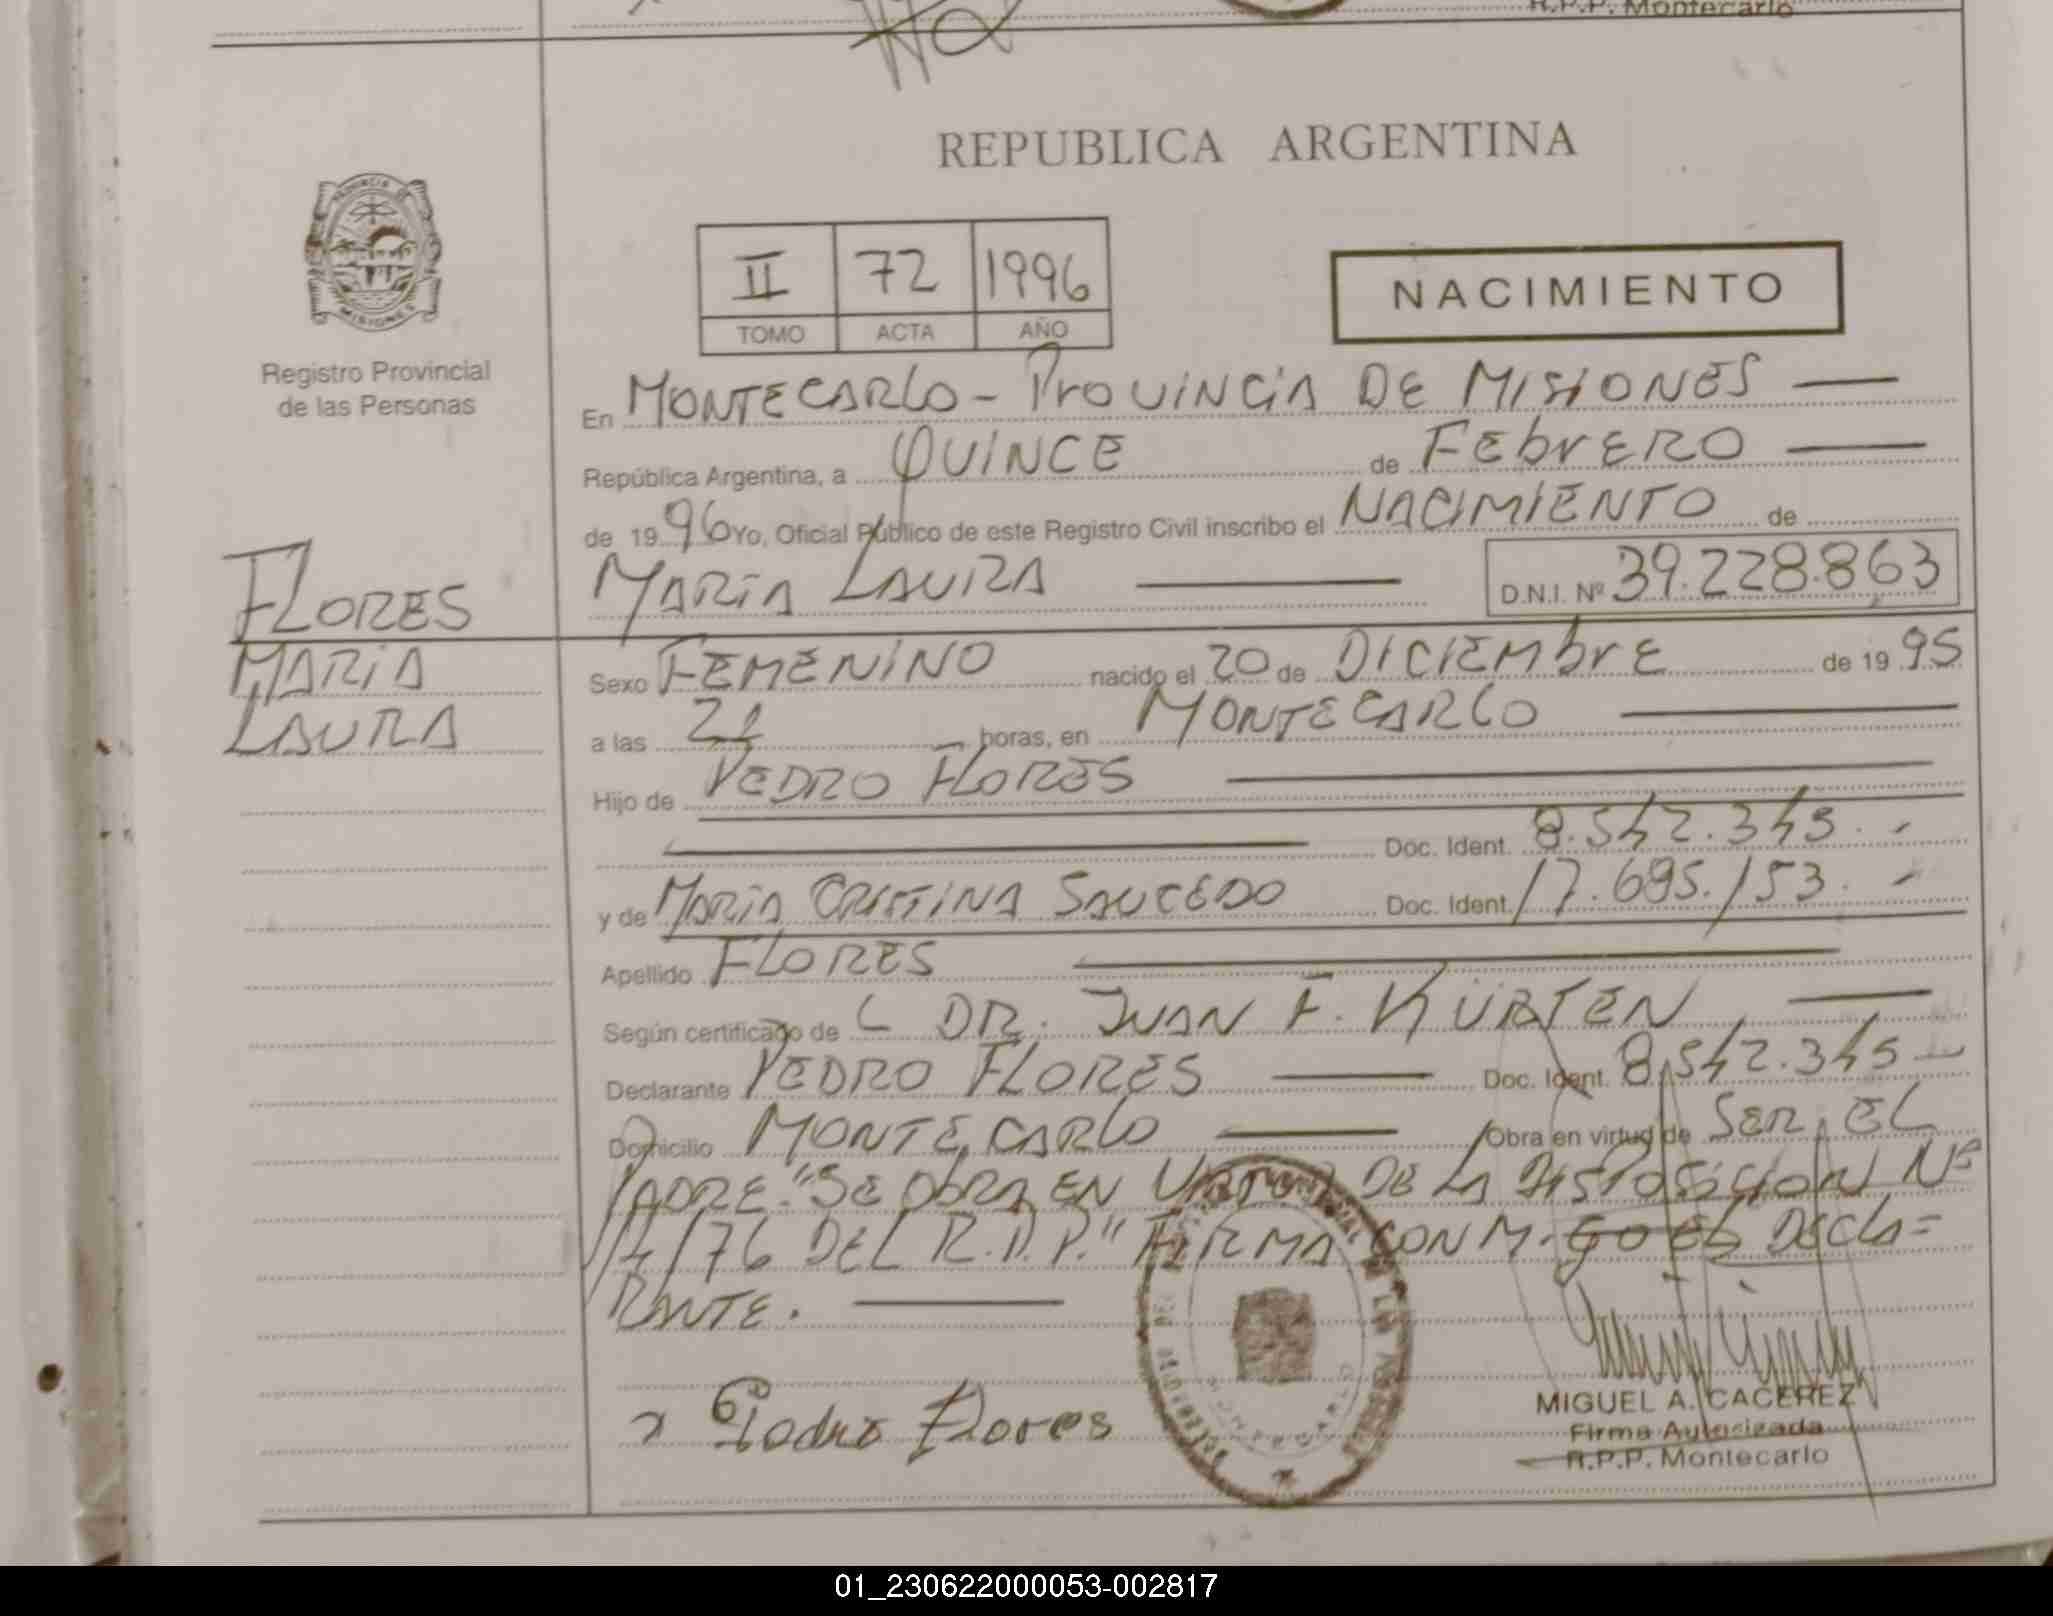 R.P.P. Montecarlo
REPUBLICA ARGENTINA
PROVINCIA DE
MISIONES
Registro Provincial
de las Personas
II 72 1996
TOMO ACTA AÑO
NACIMIENTO
En MONTECARLO - PROVINCIA DE MISIONES
República Argentina, a QUINCE de FEBRERO
de 1996 Yo, Oficial Público de este Registro Civil inscribo el NACIMIENTO de
MARIA LAURA D.N.I. Nº 39.228.863
FLORES
MARIA
LAURA
Sexo FEMENINO nacido el 20 de DICIEMBRE de 1995
a las 21 horas, en MONTECARLO
Hijo de PEDRO FLORES
Doc. Ident. 8.542.345.-
y de MARIA CRISTINA SAUCEDO Doc. Ident. 17.695.153.-
Apellido FLORES
Según certificado de L DR. JUAN F. KÜRTEN
Declarante PEDRO FLORES Doc. Ident. 8.542.345-
Domicilio MONTECARLO Obra en virtud de SER EL
PADRE. "SE OBRA EN VIRTUD DE LA DISPOSICION Nº
14/76 DEL R.P.P." FIRMA CONM. GO EL DECLA=
RANTE.
x Pedro Flores
MONTECARLO
MIGUEL A. CACEREZ
Firma Autorizada
R.P.P. Montecarlo
01_230622000053-002817